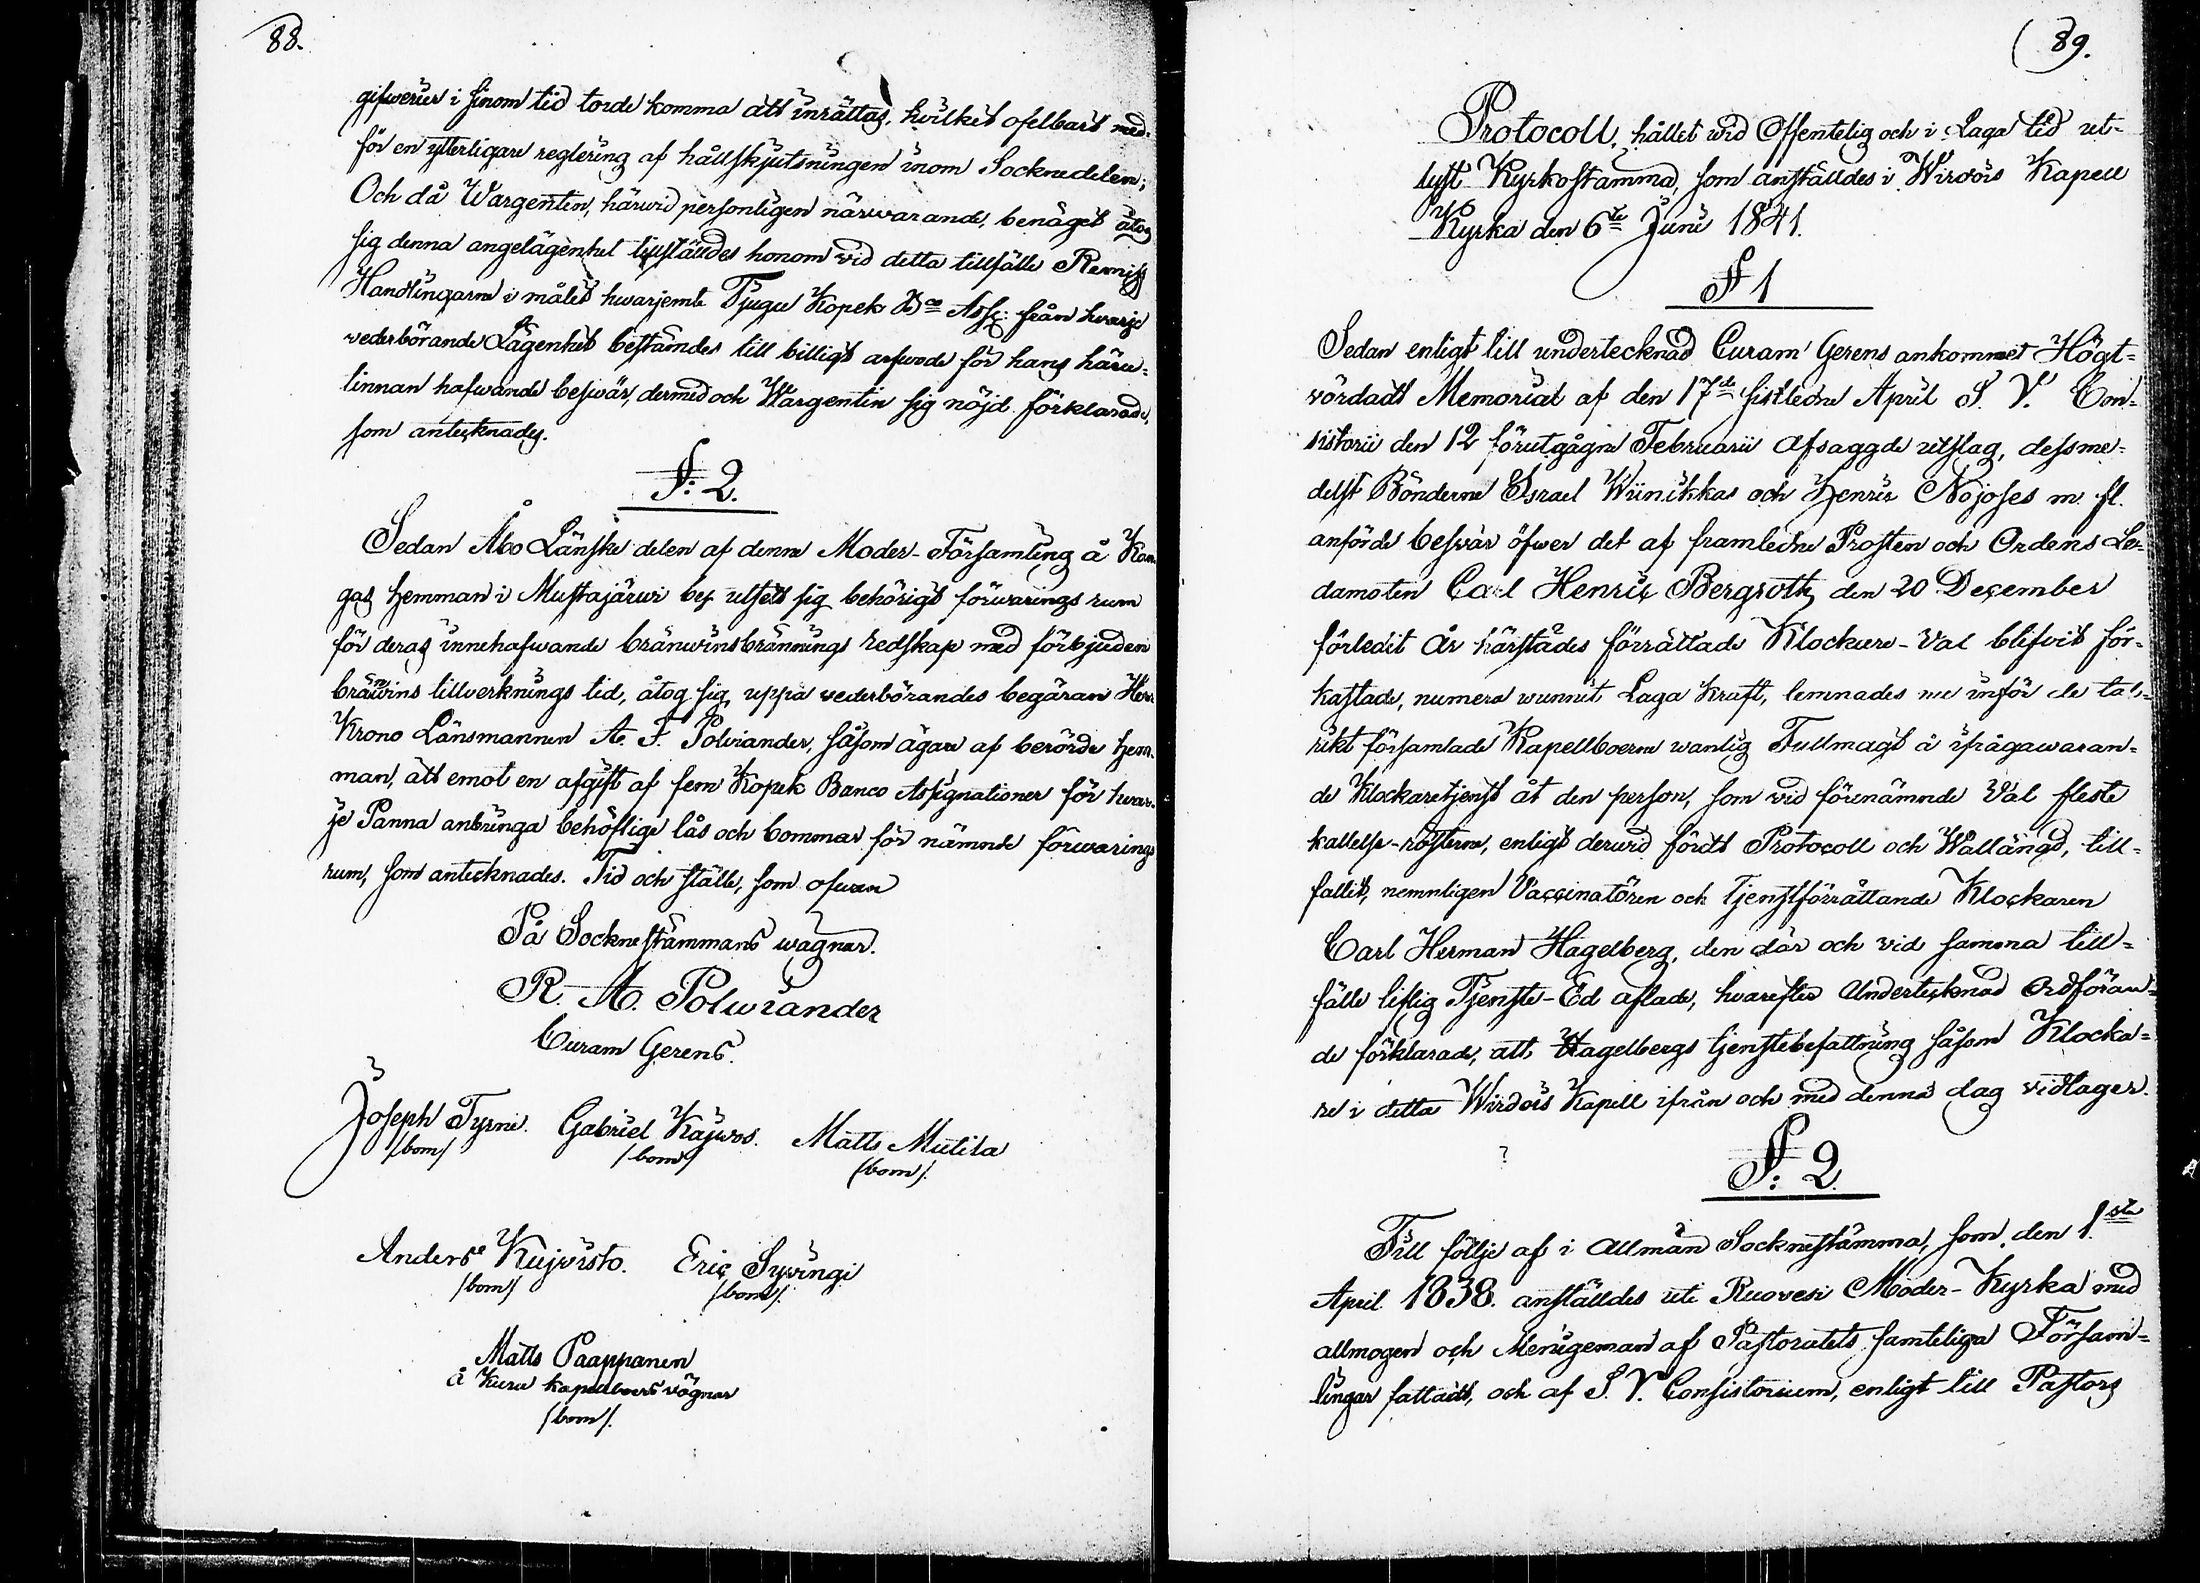 88.
gifwerier i sinom tid torde komma att inrättas, hvilket ofelbart med-
för en ytterligare reglering af hållskjutsningen inom Socknedelen;
Och då Wargentin, härwid personligen närwarande, benäget åtog
sig denna angelägenhet tillställdes honom vid detta tillfälle Remiss
Handlingarne i målet hwarjemte Tjugu Kopek Bco Assg: från hwarje
vederbörande Lägenhet bestämdes till billigt arfwode för hans häru-
tinnan hafwande beswär, dermed och Wargentin sig nöjd förklarade,
som antecknades.
§: 2.
Sedan Åbo Länske delen af denne Moder-Församling å Kan-
gas hemman i Mustajärwi by utsett sig behörigt förwarings rum
för deras innehafwande bränwinsbrännings redskap med förbjuden
bränwins tillverknings tid, åtog sig, uppå vederbörandes begäran Herr
Krono Länsmannen A. F. Polviander, såsom ägare af berörde hem-
man, att emot en afgift af fem Kopek Banco Assignationer för hwar-
je Panna anbringa behöflige lås och bommar för nämnde förwarings
rum, som antecknades. Tid och ställe, som ofwan
På Sockneštämmans wägnar.
R. A. Polwiander
Curam Gerens.
Joseph Tyrni. Gabriel Käjwos. Matts Mutila
/bom/ /bom/ /bom/.
Anders Kujvisto. Eric Sywingi
/bom/ /bom/.
Matts Paappanen
å Kuru kapellboers vägnar
/bom/.
89.
Protocoll, hållet wid Offentelig och i Laga tid ut-
lyst Kyrkostämma, som anställdes i Wirdois Kapell
Kyrka den 6te Junii 1841.
§ 1
Sedan enligt till undertecknad Curam Gerens ankommet Högt-
vördadt Memorial af den 17de sistledne April S. V. Con-
sistorii den 12 förutgågne Februarii afsaggde utslag, dessme-
delst Bönderne Israel Wiinikkas och Henric Nojoses m. fl.
anförde beswär öfwer det af framledne Prosten och Ordens Le-
damoten Carl Henric Bergroth, den 20 December
förledit År härstädes förrättade Klockare-Val blifvit för-
kastade, numera wunnit Laga Kraft, lemnades nu inför de tal-
rikt församlade Kapellboerne wanlig Fullmagt å ifrågawaran-
de Klockaretjenst åt den person, som vid förenämnde Val fleste
kallelse-rösterne, enligt derwid fördt Protocoll och Wallängd, till-
fallit, nemnligen Vaccinatören och Tjenstförrättande Klockaren
Carl Herman Hagelberg, den där och vid samma till-
fälle liflig Tjenste-Ed aflade, hvarefter Undertecknad Ordföran-
de förklarade, att Hagelbergs tjenstebefattning såsom Klocka-
re i detta Wirdois Kapell ifrån och med denna dag vidtager.
§: 2.
Till följe af i Allmän Sockneštämma, som den 1sta
April 1838. anställdes uti Ruovesi Moder-Kyrka med
allmogen och Menigeman af Pastoratets samteliga Försam-
lingar fattadt, och af S. V. Consistorium, enligt till Pastors